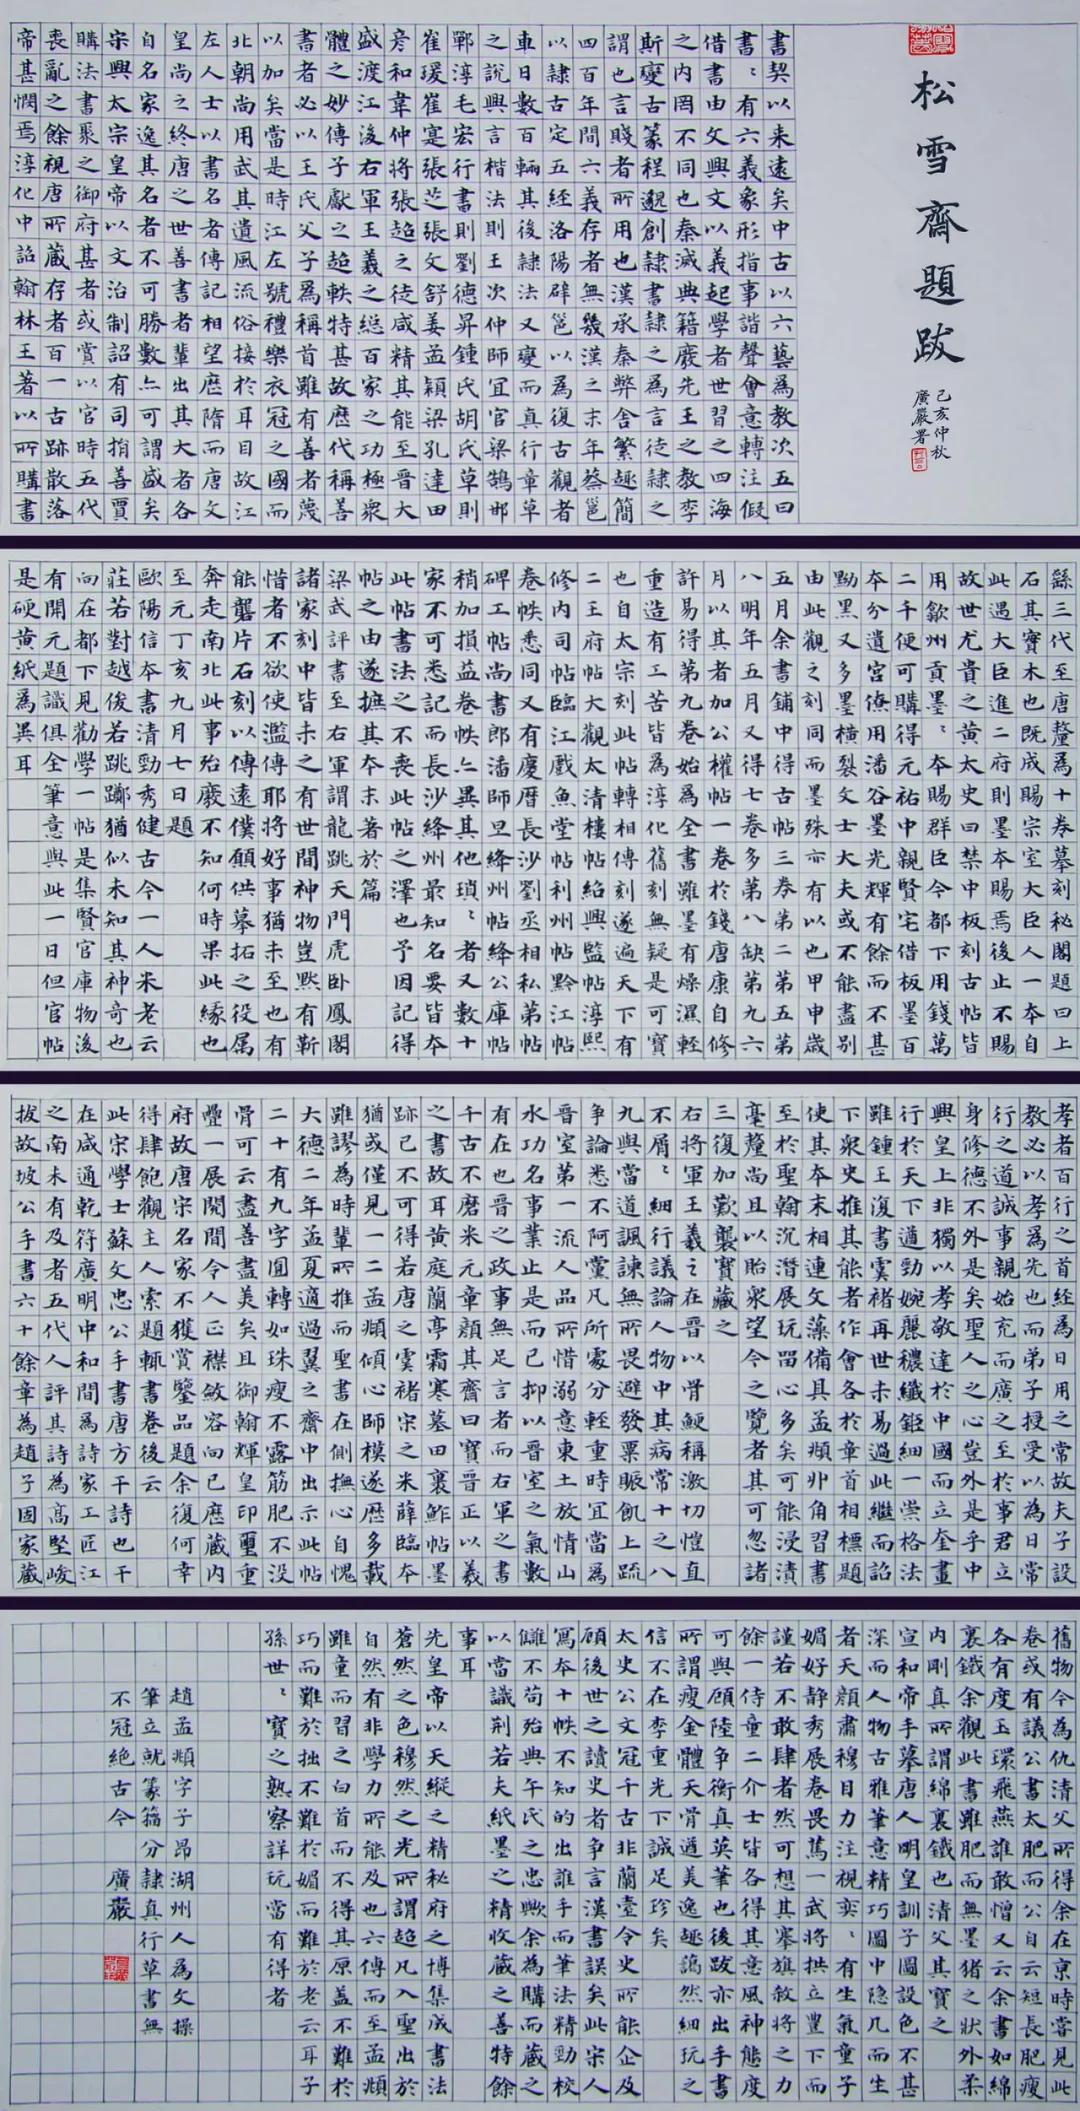 松雪齋題跋
己亥仲秋
廣嚴署
書契以来遠矣中古以六藝為教次五曰
書〻有六義象形指事諧聲會意轉注假
借書由文興文以義起學者世習之四海
之内罔不同也秦滅典籍廢先王之教李
斯變古篆程邈創隸書隸之為言徒隸之
謂也言賤者所用也漢承秦弊舍繁趣簡
四百年間六義存者無幾漢之末年蔡邕
以隸古定五經洛陽辟邕以為復古觀者
車日數百輛其後隸法又變而真行章草
之說興言楷法則王次仲師宜官梁鵠邯
鄲淳毛宏行書則劉德昇鍾氏胡氏草則
崔瑗崔寔張芝張文舒姜孟穎梁孔達田
彦和韋仲將張超之徒咸精其能至晉大
盛渡江後右軍王羲之總百家之功極衆
體之妙傳子獻之超軼特甚故歷代稱善
書者必以王氏父子為稱首雖有善者蔑
以加矣當是時江左號禮樂衣冠之國而
北朝尚用武其遺風流俗接於耳目故江
左人士以書名者傳記相望歷隋而唐文
皇尚之終唐之世善書者輩出其大者各
自名家逸其名者不可勝數亦可謂盛矣
宋興太宗皇帝以文治制詔有司捐善賈
購法書聚之御府甚者或賞以官時五代
喪亂之餘視唐所藏存者百一古跡散落
帝甚憫焉淳化中詔翰林王著以所購書
繇三代至唐釐為十卷摹刻秘閣題曰上
石其實木也既成賜宗室大臣人一本自
此遇大臣進二府則墨本賜焉後止不賜
故世尤貴之黄太史曰禁中板刻古帖皆
用歙州貢墨〻本賜群臣今都下用錢萬
二千便可購得元祐中親賢宅借板墨百
本分遺宮僚用潘谷墨光輝有餘而不甚
黝黑又多墨橫裂文士大夫或不能盡别
由此觀之刻同而墨殊亦有以也甲申歲
五月余書鋪中得古帖三券第二第五第
八明年五月又得七卷多第八缺第九六
月以其者加公權帖一卷於錢唐康自修
許易得第九卷始為全書雖墨有燥濕輕
重造有工苦皆為淳化舊刻無疑是可寶
也自太宗刻此帖轉相傳刻遂遍天下有
二王府帖大觀太清樓帖紹興監帖淳熙
修内司帖臨江戲魚堂帖利州帖黔江帖
卷帙悉同又有慶曆長沙劉丞相私第帖
碑工帖尚書郎潘師旦絳州帖絳公庫帖
稍加損益卷帙亦異其他瑣〻者又數十
家不可悉記而長沙絳州最知名要皆本
此帖書法之不喪此帖之澤也予因記得
帖之由遂摭其本末著於篇
梁武評書至右軍謂龍跳天門虎卧鳳閣
諸家刻中皆未之有世間神物豈默有靳
惜者不欲使濫傳耶將好事猶未至也有
能礱片石刻以傳遠僕願供摹拓之役属
奔走南北此事殆廢不知何時果此緣也
至元丁亥九月七日題
歐陽信本書清勁秀健古今一人米老云
莊若對越俊若跳擲猶似未知其神奇也
向在都下見勸學一帖是集賢官庫物後
有開元題識俱全筆意與此一日但官帖
是硬黄紙為異耳
孝者百行之首經為日用之常故夫子設
教必以孝為先也而弟子授受以為日常
行之道誠事親始充而廣之至於事君立
身修德不外是矣聖人之心豈外是乎中
興皇上非獨以孝敬達於中國而立奎畫
行於天下遒勁婉麗穠纖鉅細一崇格法
雖鍾王復書虞褚再世未易過此繼而詔
下衆史推其能者作會各於章首相標題
使其本末相連文藻備具孟頫丱角習書
至於聖翰沉潛展玩畱心多矣可能浸漬
毫釐尚且以貽衆望今之覽者其可忽諸
三復加歎襲寶藏之
右將軍王羲之在晉以骨鯁稱激切愷直
不屑〻細行議論人物中其病常十之八
九與當道諷諫無所畏避發粟賑飢上疏
争論悉不阿黨凡所處分輕重時宜當為
晉室第一流人品所惜溺意東土放情山
水功名事業止是而已抑以晉室之氣數
有在也晉之政事無足言者而右軍之書
千古不磨米元章顏其齋曰寶晉正以羲
之書故耳黄庭蘭亭霜寒墓田裹鮓帖墨
跡已不可得若唐之虞褚宋之米薛臨本
猶或僅見一二孟頫傾心師模遂歷多載
雖謬為時輩所推而聖書在側撫心自愧
大德二年孟夏適過翼之齋中出示此帖
二十有九字圓轉如珠瘦不露筋肥不没
骨可云盡善盡美矣且御翰輝皇印璽重
疊一展閱間令人正襟斂容向已歷藏内
府故唐宋名家不獲賞鑒品題余復何幸
得肆飽觀主人索題輒書卷後云
此宋學士蘇文忠公手書唐方干詩也干
在咸通乾符廣明中和間為詩家工匠江
之南未有及者五代人評其詩為高堅峻
拔故坡公手書六十餘章為趙子固家藏
舊物今為仇清父所得余在京時嘗見此
卷或有議公書太肥而公自云短長肥瘦
各有度玉環飛燕誰敢憎又云余書如綿
裹鐵余觀此書雖肥而無墨猪之狀外柔
内剛真所謂綿裹鐵也清父其寶之
宣和帝手摹唐人明皇訓子圖設色不甚
深而人物古雅筆意精巧圖中隐几而生
者天顏肅穆目力注視奕〻有生氣童子
媚好静秀展卷畏篤一武將拱立豐下而
謹若不敢肆者然可想其搴旗敘將之力
餘一侍童二介士皆各得其意風神態度
可與顧陸争衡真英筆也後跋亦出手書
所謂瘦金體天骨遒美逸趣藹然細玩之
信不在李重光下誠足珍矣
太史公文冠千古非蘭臺令史所能企及
顧後世之讀史者争言漢書誤矣此宋人
寫本十帙不知的出誰手而筆法精勁校
讎不苟殆典午氏之忠歟余為購而藏之
以當識荆若夫紙墨之精收藏之善特餘
事耳
先皇帝以天縱之精秘府之博集成書法
蒼然之色穆然之光所謂超凡入聖出於
自然有非學力所能及也六傳而至孟頫
雖童而習之白首而不得其原盖不難於
巧而難於拙不難於媚而難於老云耳子
孫世〻寶之熟察詳玩當有得者
趙孟頫字子昂湖州人為文操
筆立就篆籀分隸真行草書無
不冠絶古今 廣嚴